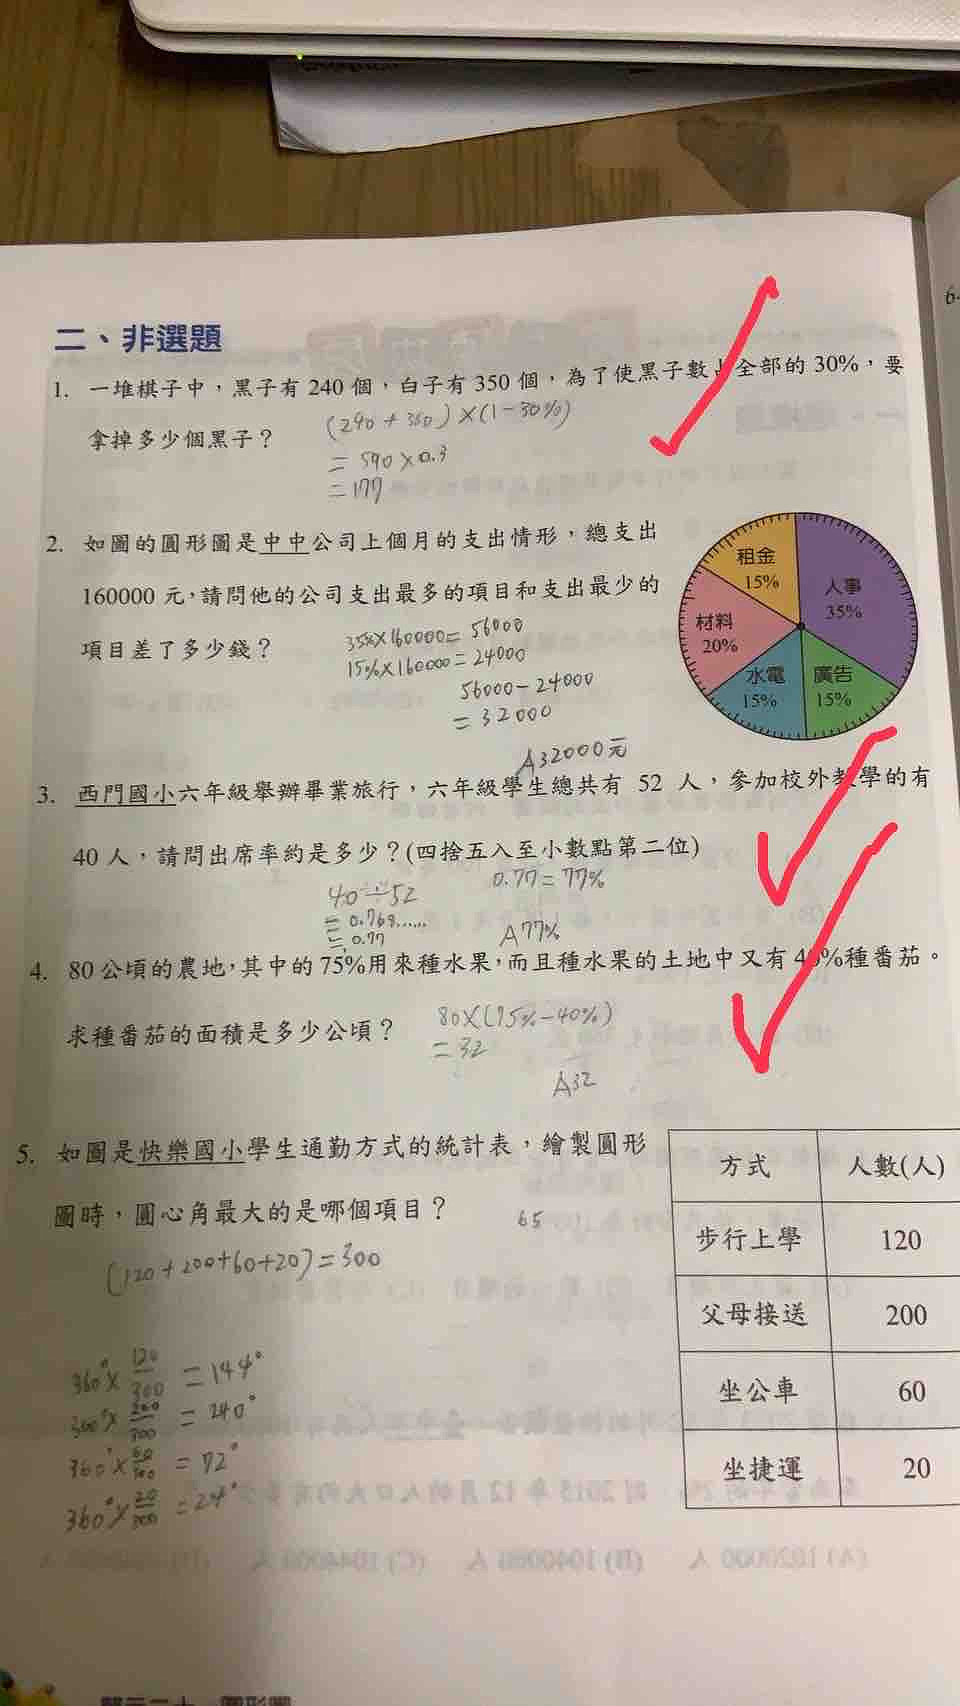 二、非選題
1. 一堆棋子中，黑子有 240 個，白子有 350 個，為了使黑子數占全部的 30%，要
拿掉多少個黑子？
(240 + 350) ×(1-30%)
= 590 × 0.3
= 177
2. 如圖的圓形圖是中中公司上個月的支出情形，總支出
160000 元，請問他的公司支出最多的項目和支出最少的
項目差了多少錢？
35%×160000= 56000
15%×160000=24000
56000-24000
= 32000
A32000元
租金
15%
人事
35%
材料
20%
水電
15%
廣告
15%
3. 西門國小六年級舉辦畢業旅行，六年級學生總共有 52 人，參加校外教學的有
40 人，請問出席率約是多少？(四捨五入至小數點第二位)
40÷52
= 0.769......
= 0.77
0.77= 77%
A77%
4. 80 公頃的農地，其中的 75%用來種水果，而且種水果的土地中又有 40%種番茄。
求種番茄的面積是多少公頃？
80×(75%-40%)
= 32
A32
5. 如圖是快樂國小學生通勤方式的統計表，繪製圓形
圖時，圓心角最大的是哪個項目？
65
(120+200+60+20)=300
360°× 120/300 = 144°
300°× 200/300 = 240°
360°× 60/300 = 72°
360°× 20/300 = 24°
方式 人數(人)
步行上學 120
父母接送 200
坐公車 60
坐捷運 20